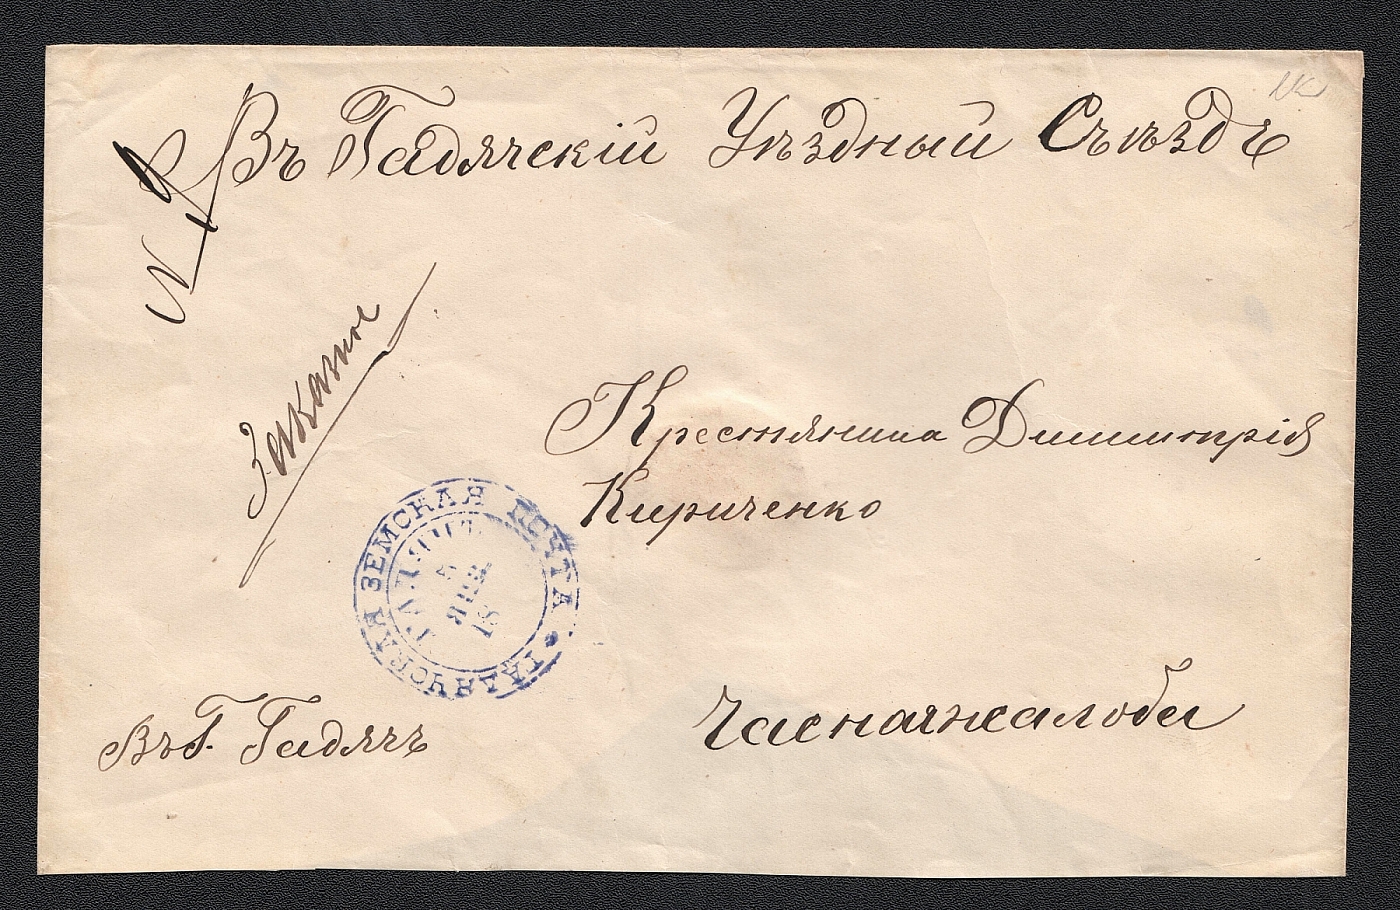 Въ Гадячскій Уѣздный Съѣздъ
№ 9
Заказное
Крестянина Димитрія
Кириченко
ГАДЯЧСКАЯ ЗЕМСКАЯ ПОЧТА
ГАДЯЧЪ
ЯНВ
Въ Г. Гадячъ
Часная жалоба